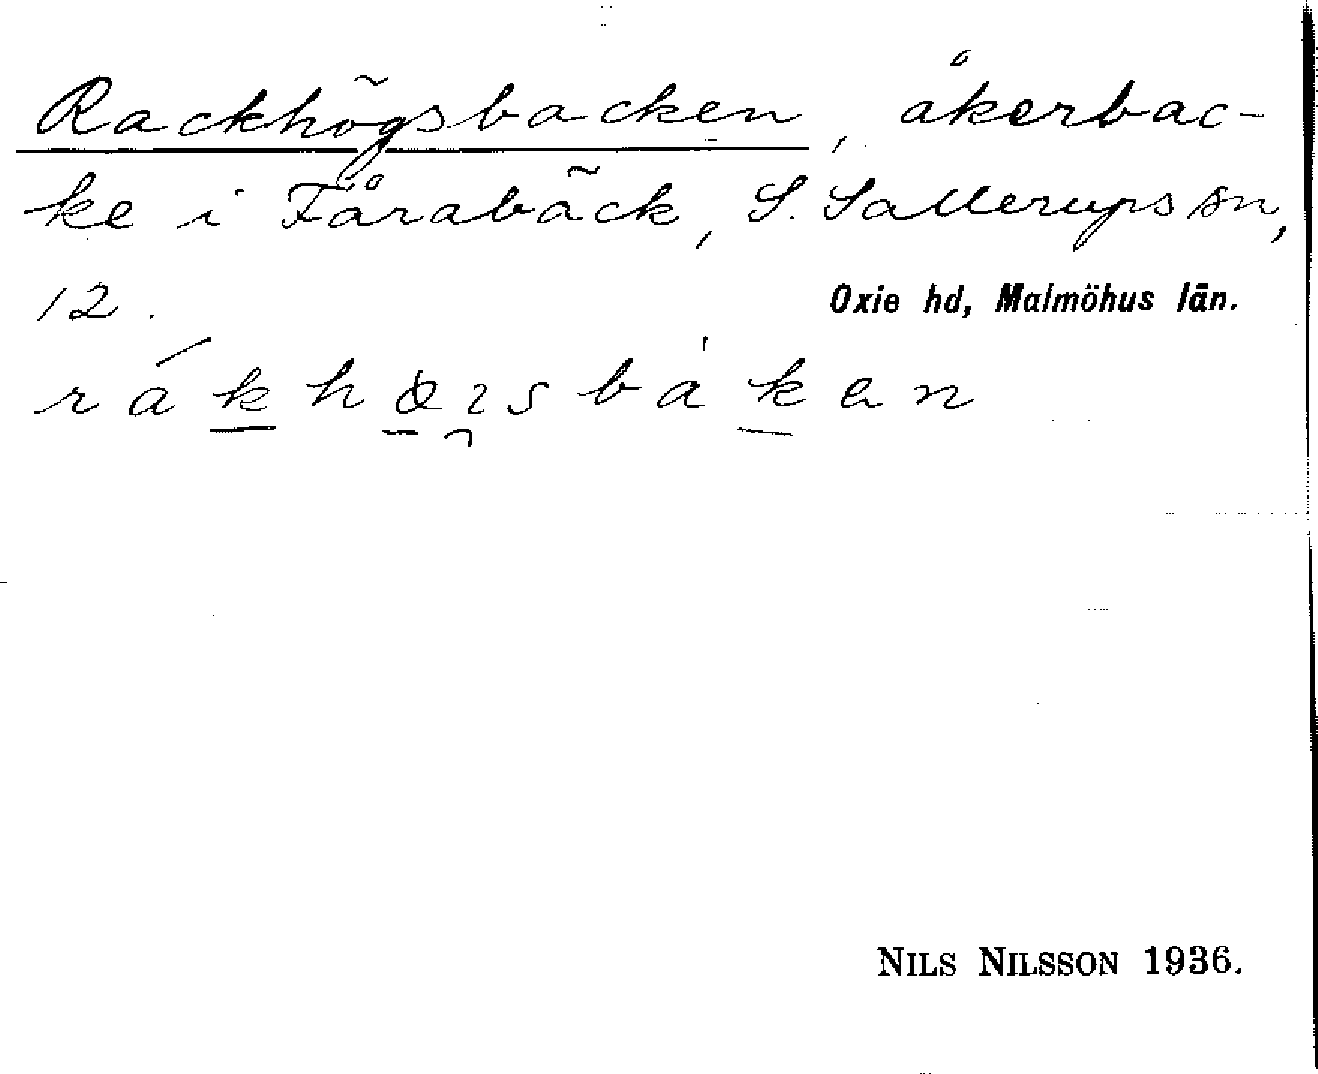 Rackhögsbacken, åkerbac-
ke i Fårabäck, S. Sallerups sn,
12.
Oxie hd, Malmöhus län.
rákhøisbàkən
NILS NILSSON 1936.